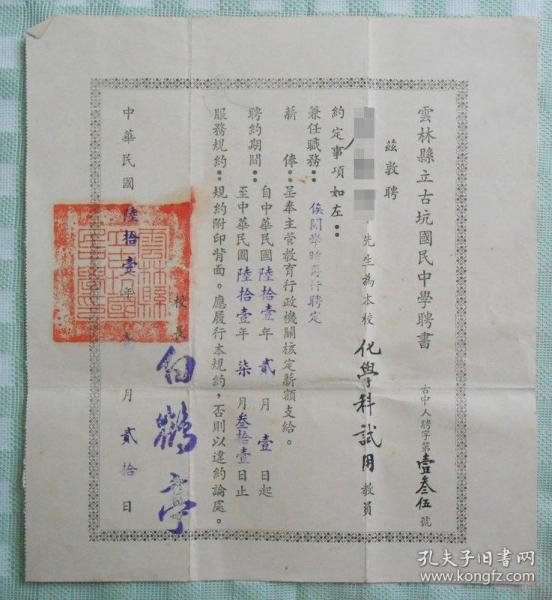 雲林縣立古坑國民中學聘書
古中人聘字第壹叁伍號
茲敦聘
先生為本校化學科試用教員
約定事項如左：
兼任職務：俟開學時再行聘定
薪俸：呈奉主管教育行政機關核定薪額支給。
聘約期間：自中華民國陸拾壹年貳月壹日起
至中華民國陸拾壹年柒月叁拾壹日止
服務規約：規約附印背面。應履行本規約，否則以違約論處。
校長
白鶴亭
中華民國陸拾壹年 月貳拾日
孔夫子旧书网
www.kongfz.com